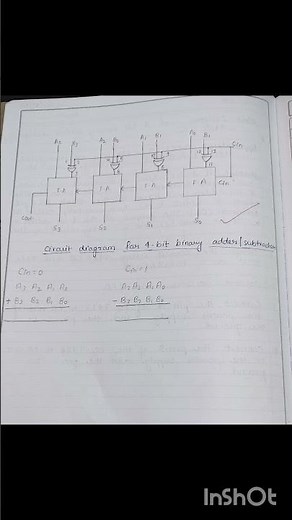 A3 B3 A2 B2 A1 B1 A0 B0
Cin
F.A F.A F.A F.A
Cin
Cout
S3 S2 S1 S0
Circuit diagram for 4-bit binary adder/subtractor
Cin=0 Cin=1
A3 A2 A1 A0 A3 A2 A1 A0
+ B3 B2 B1 B0 - B3 B2 B1 B0
InShOt